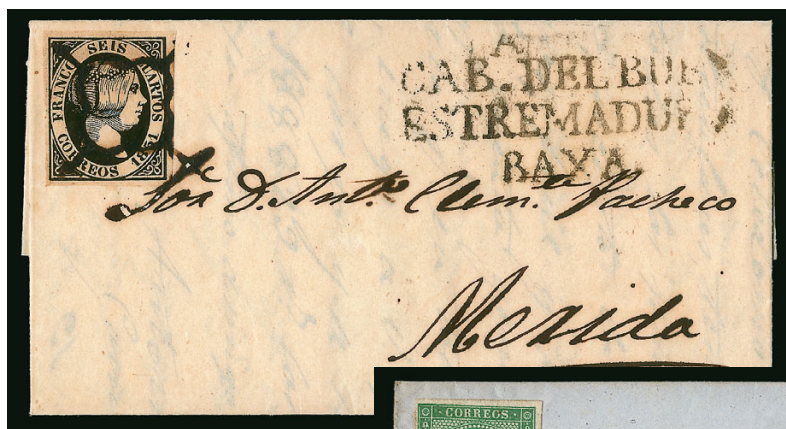 FRANCO SEIS CUARTOS
CORREOS 1851
CAB. DEL BUE
ESTREMADURA
BAXA
Sor. D. Anto. Clemte. Pacheco
Merida
CORREOS